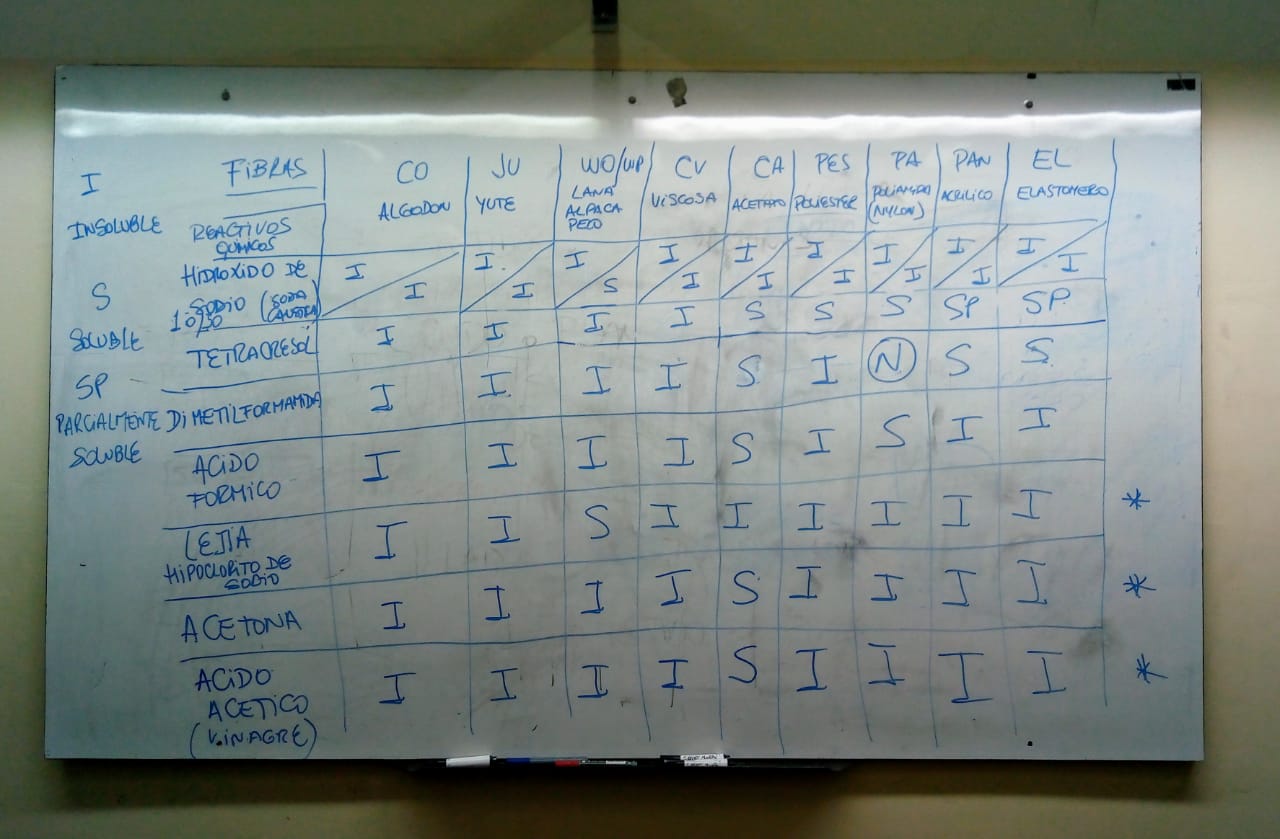 I
INSOLUBLE
S
SOLUBLE
SP
PARCIALMENTE
SOLUBLE
FIBRAS CO JU WO/WP CV CA PES PA PAN EL
ALGODON YUTE LANA ALPACA PELO VISCOSA ACETATO POLIESTER POLIAMIDA (NYLON) ACRILICO ELASTOMERO
REACTIVOS
QUIMICOS
HIDROXIDO DE I I I I I I I I I
SODIO (SODA CAUSTICA) I I S I I I I I I
10%
TETRACRESOL I I I I S S S SP SP
DIMETILFORMAMIDA I I I I S I N S S
ACIDO
FORMICO I I I I S I S I I
LEJIA I I S I I I I I I *
HIPOCLORITO DE
SODIO
ACETONA I I I I S I I I I *
ACIDO
ACETICO I I I I S I I I I *
(VINAGRE)